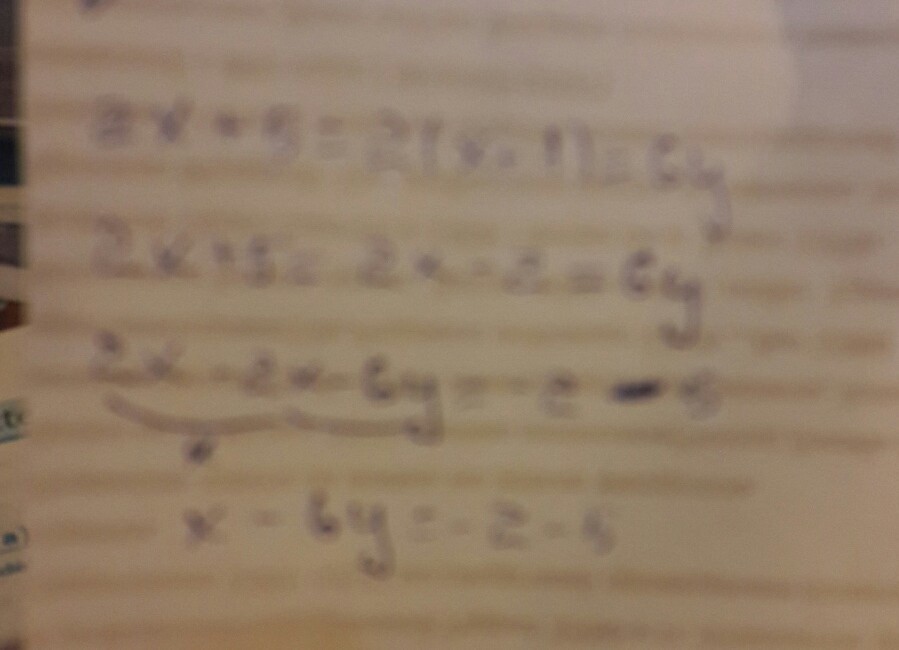 2x + 5 = 2(x - 1) = 6y
2x + 5 = 2x - 2 = 6y
2x - 2x - 6y = -2 - 5
x - 6y = -2 - 5